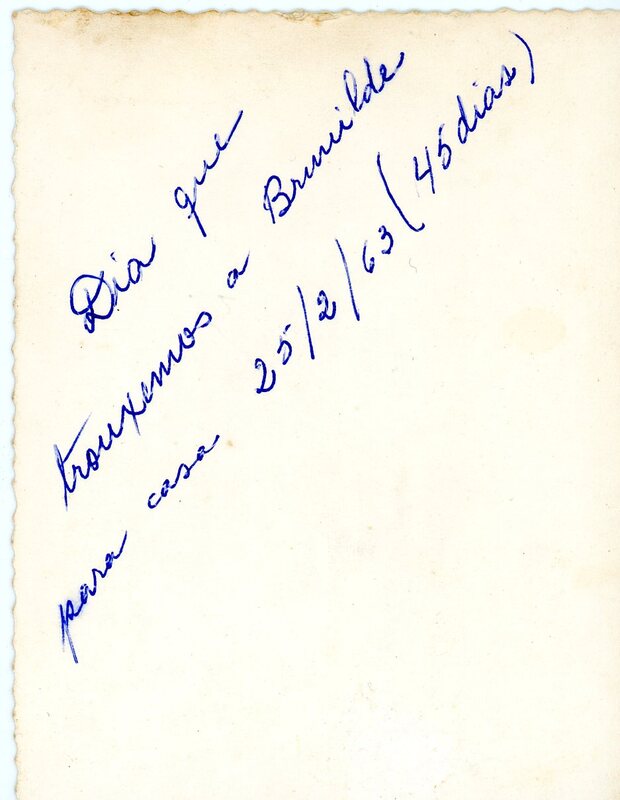 Dia que
trouxemos a Brunilde
para casa 25/2/63 (45 dias)